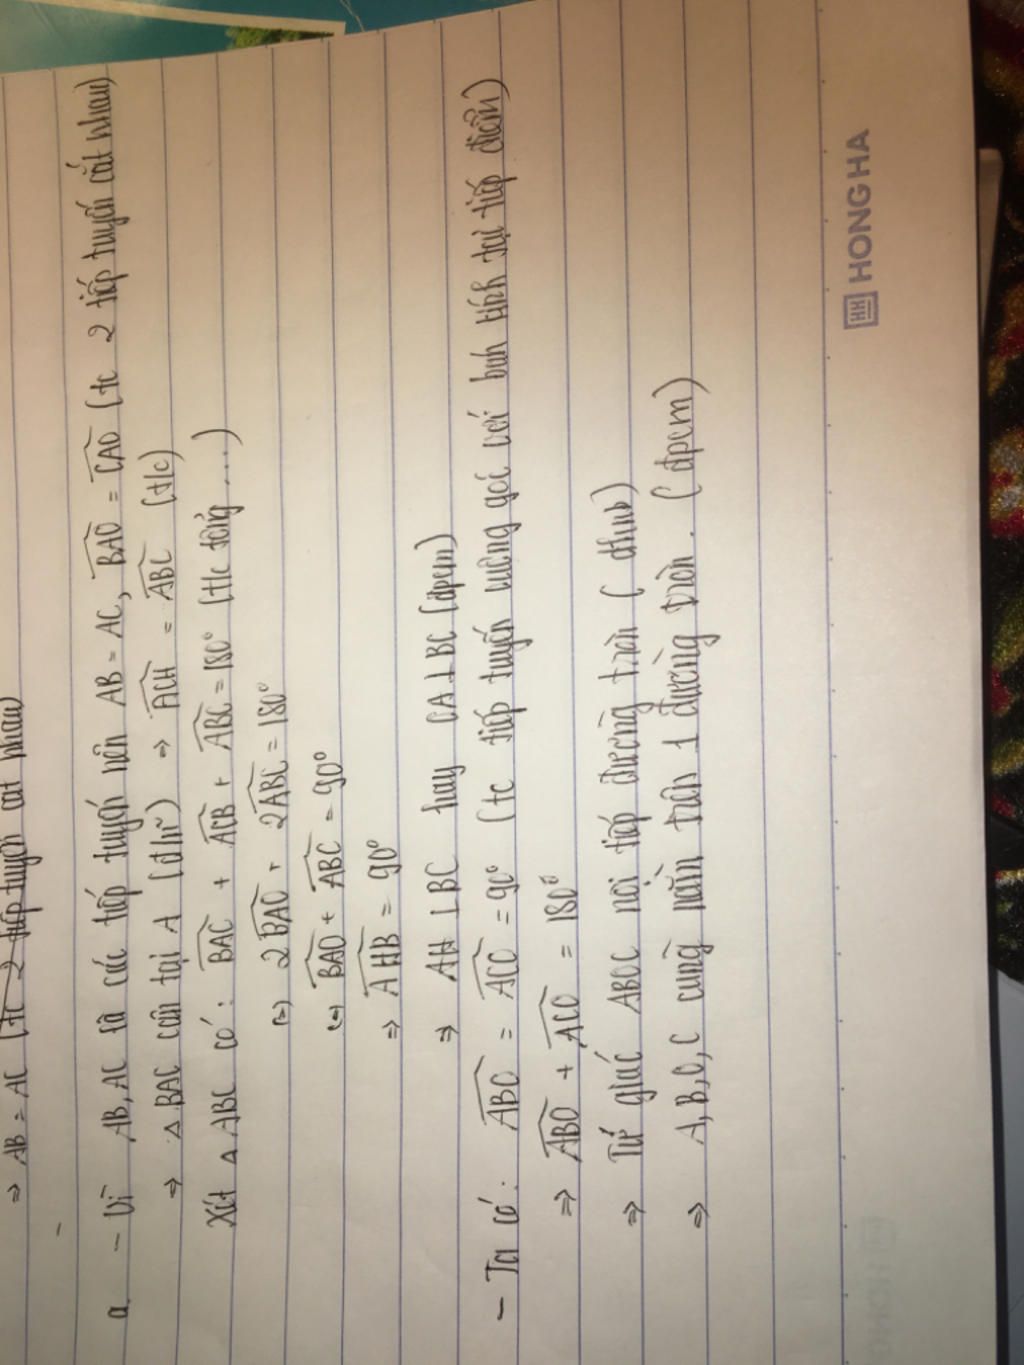 ⇒ AB = AC (tc 2 tiếp tuyến cắt nhau)
a. - Vì AB, AC là các tiếp tuyến nên AB = AC, BAO = CAO (tc 2 tiếp tuyến cắt nhau)
⇒ Δ BAC cân tại A (đ/n) ⇒ ACH = ABC (t/c)
Xét Δ ABC có: BAC + ACB + ABC = 180° (t/c tổng ....)
(=) 2BAO + 2ABC = 180°
(=) BAO + ABC = 90°
⇒ AHB = 90°
⇒ AH ⊥ BC hay OA ⊥ BC (đpcm)
- Ta có: ABO = ACO = 90° (tc tiếp tuyến vuông góc với bán kính tại tiếp điểm)
⇒ ABO + ACO = 180°
⇒ Tứ giác ABOC nội tiếp đường tròn (dhnb)
⇒ A, B, O, C cùng nằm trên 1 đường tròn. (đpcm)
HH HONG HA